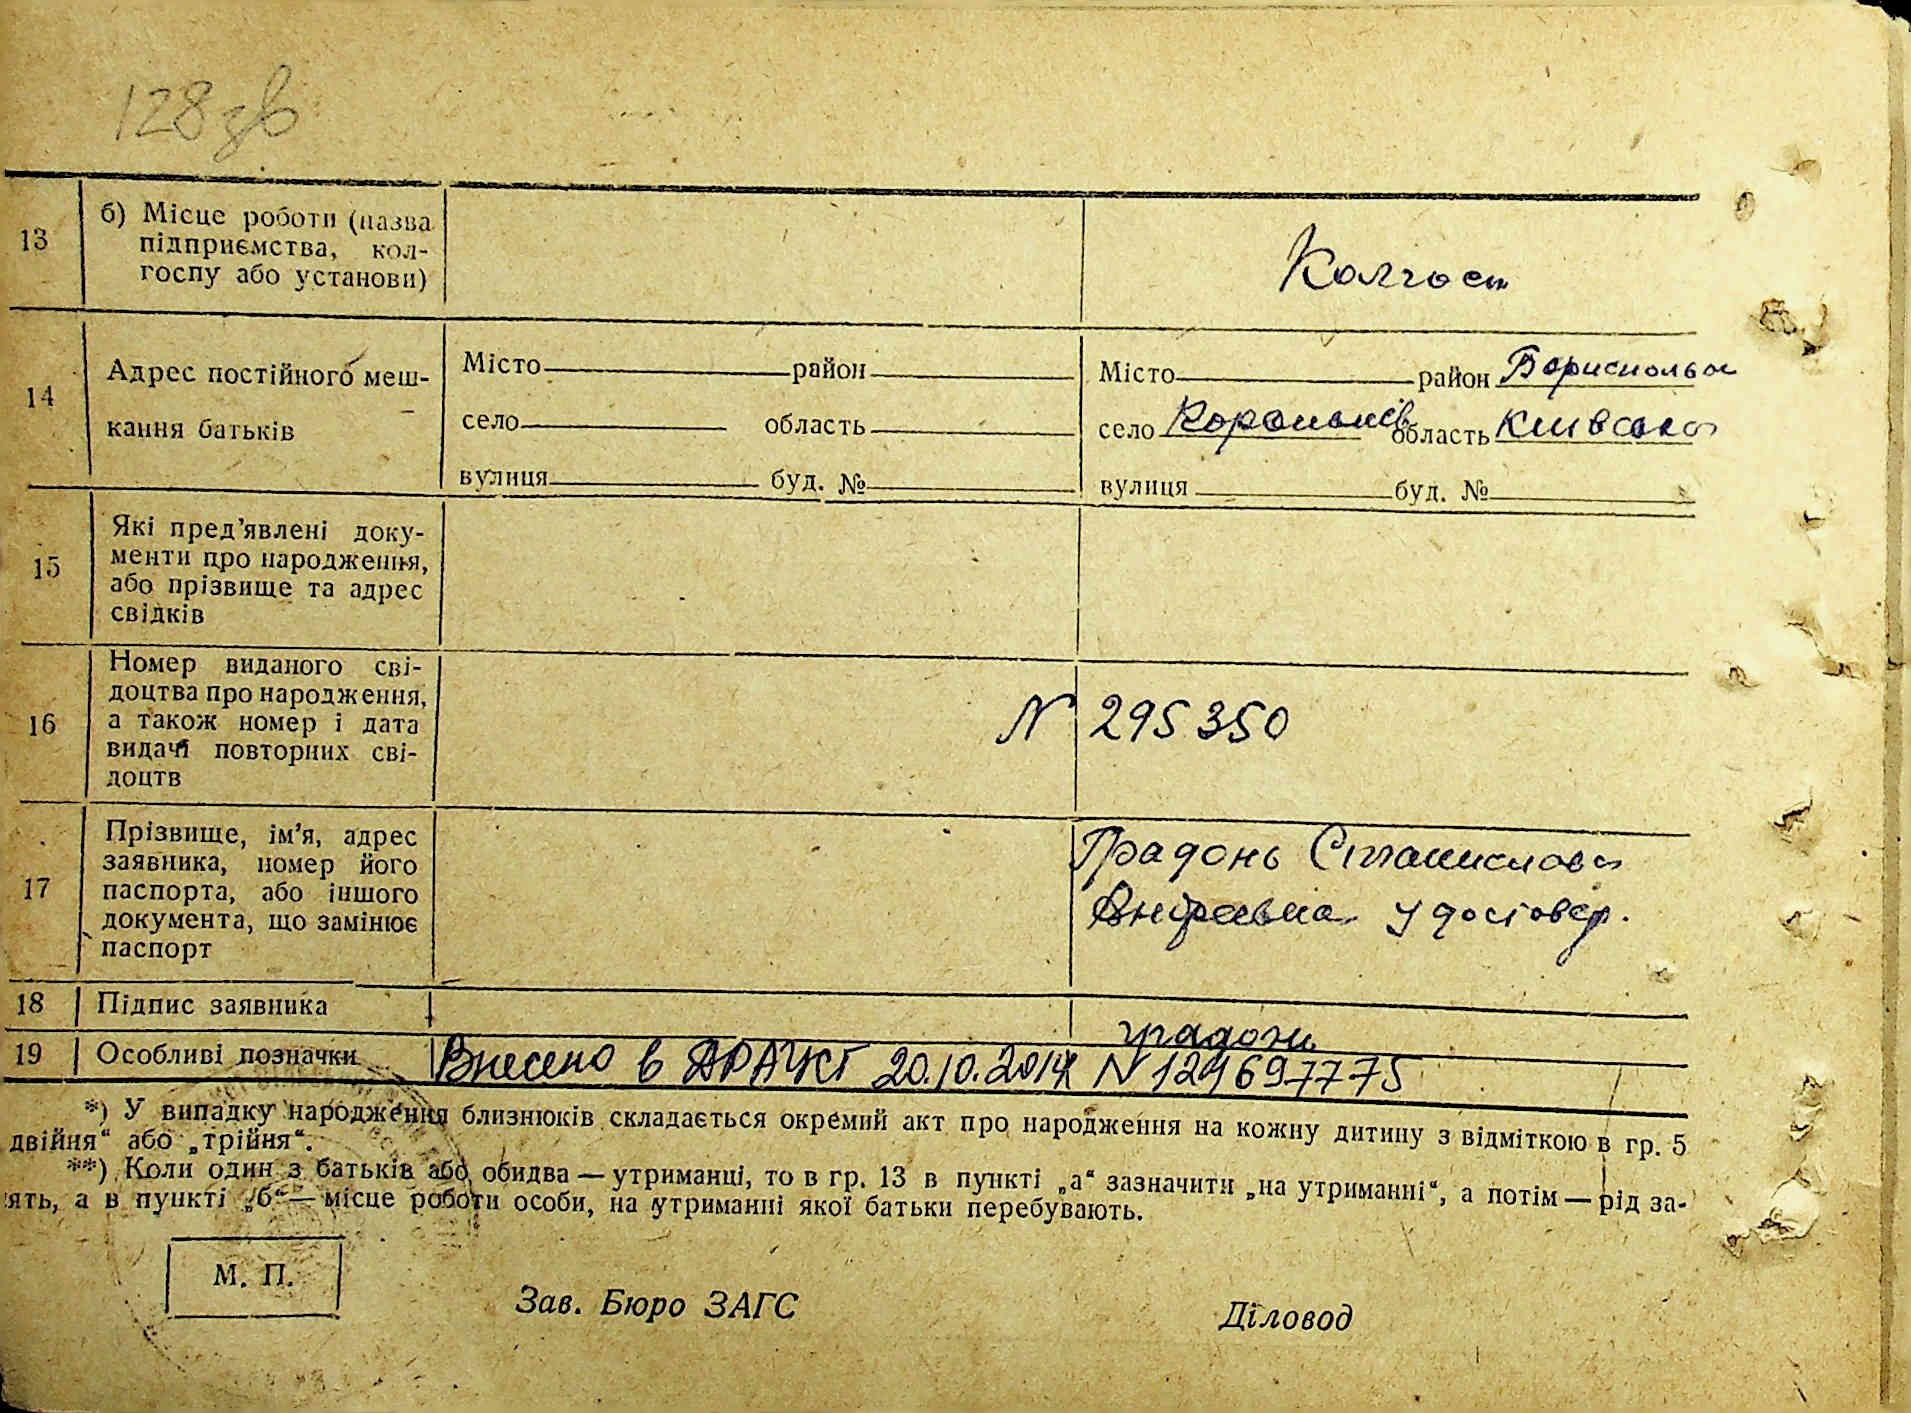 128 зв
13 б) Місце роботи (назва
підприємства, кол-
госпу або установи)
Колгосп
14 Адрес постійного меш-
кання батьків
Місто район
село область
вулиця буд. №
Місто район Бориспольс
село область Київська
вулиця буд. №
15 Які пред’явлені доку-
менти про народження,
або прізвище та адрес
свідків
16 Номер виданого сві-
доцтва про народження,
а також номер і дата
видачі повторних сві-
доцтв
N 295350
17 Прізвище, ім’я, адрес
заявника, номер його
паспорта, або іншого
документа, що замінює
паспорт
Градонь Станислова
удостовер.
18 Підпис заявника
градонь
19 Особливі позначки
Внесено в ДРАЦСГ 20.10.2014 N 129697775
*) У випадку народження близнюків складається окремий акт про народження на кожну дитину з відміткою в гр. 5
двійня“ або „трійня“.
**) Коли один з батьків або обидва — утриманці, то в гр. 13 в пункті „а“ зазначити „на утриманні“, а потім — рід за-
ять, а в пункті „б“ — місце роботи особи, на утриманні якої батьки перебувають.
М. П.
Зав. Бюро ЗАГС
Діловод